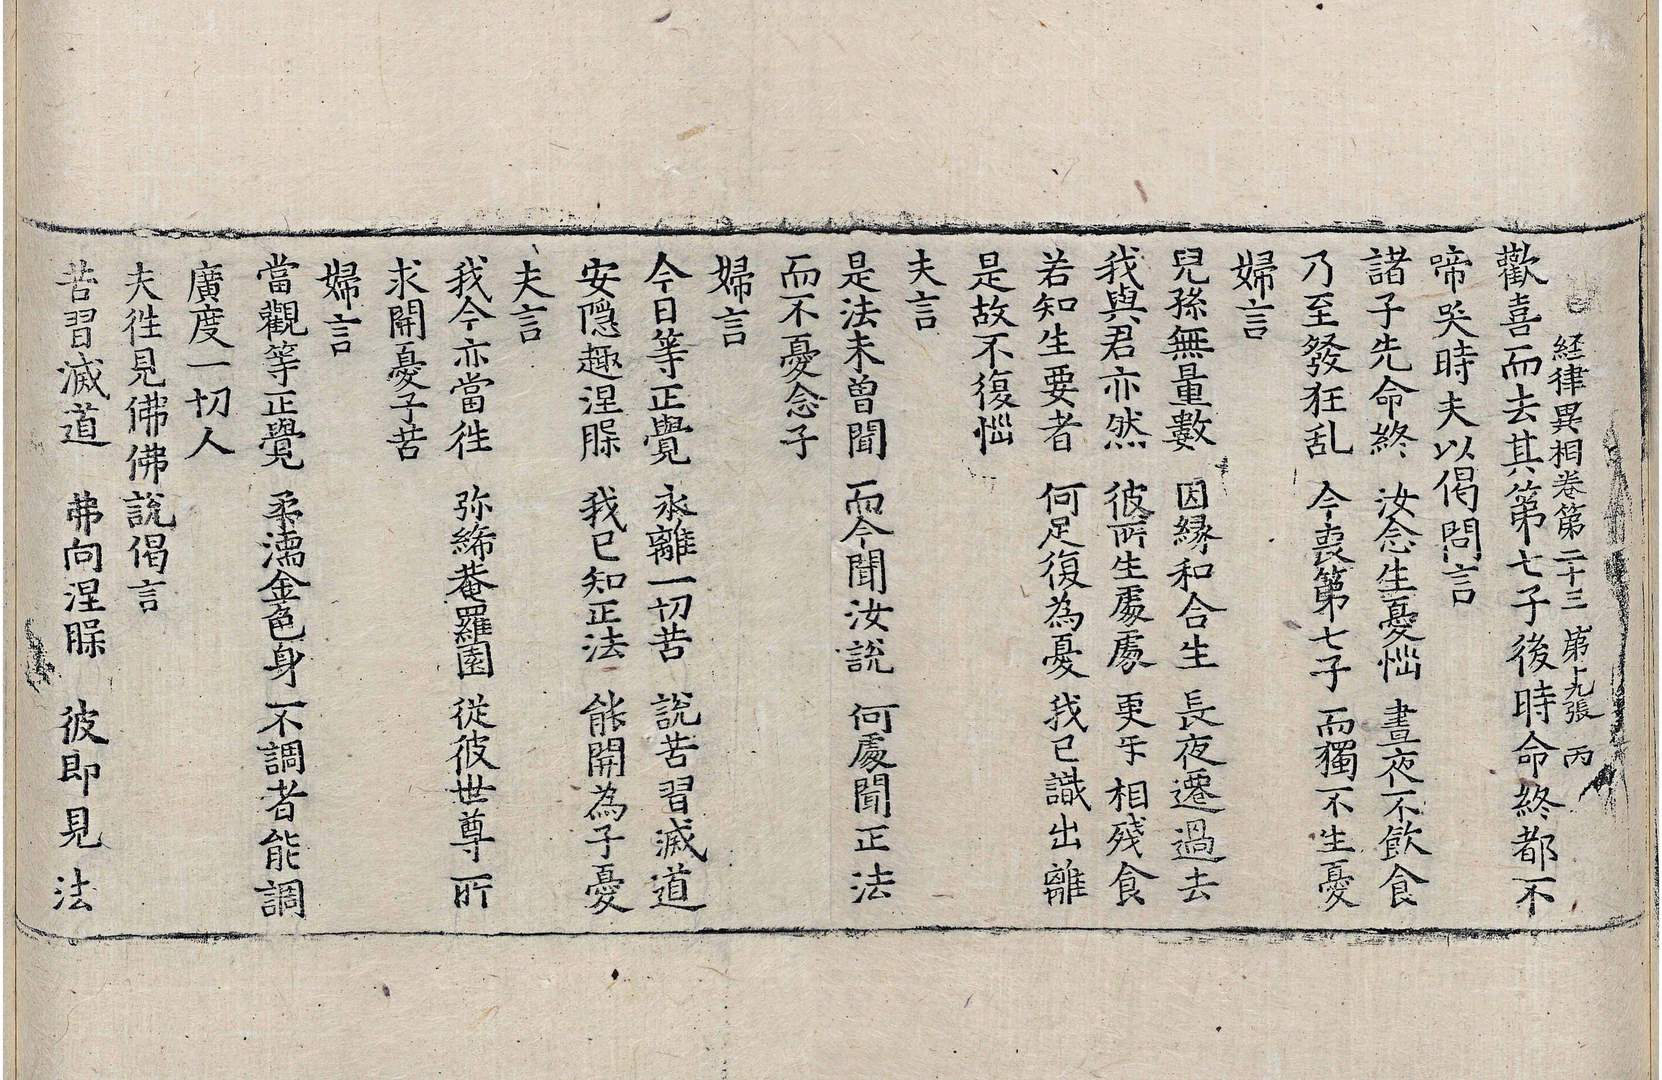 経律異相卷第二十三 第十九張 丙
歡喜而去其第七子後時命終都不
啼哭時夫以偈問言
諸子先命終 汝念生憂惱 晝夜不飲食
乃至發狂乱 今喪第七子 而獨不生憂
婦言
兒孫無量數 因縁和合生 長夜遷過去
我與君亦然 彼所生處處 更乐相殘食
若知生要者 何足復為憂 我已識出離
是故不復惱
夫言
是法未曾聞 而今聞汝說 何處聞正法
而不憂念子
婦言
今日等正覺 永離一切苦 說苦習滅道
安隱趣涅脲 我已知正法 能開為子憂
夫言
我今亦當徃 弥絺菴羅園 從彼世尊所
求開憂子苦
婦言
當觀等正覺 柔濡金色身 不調者能調
廣度一切人
夫徃見佛佛說偈言
苦習滅道 弗向涅脲 彼即見法